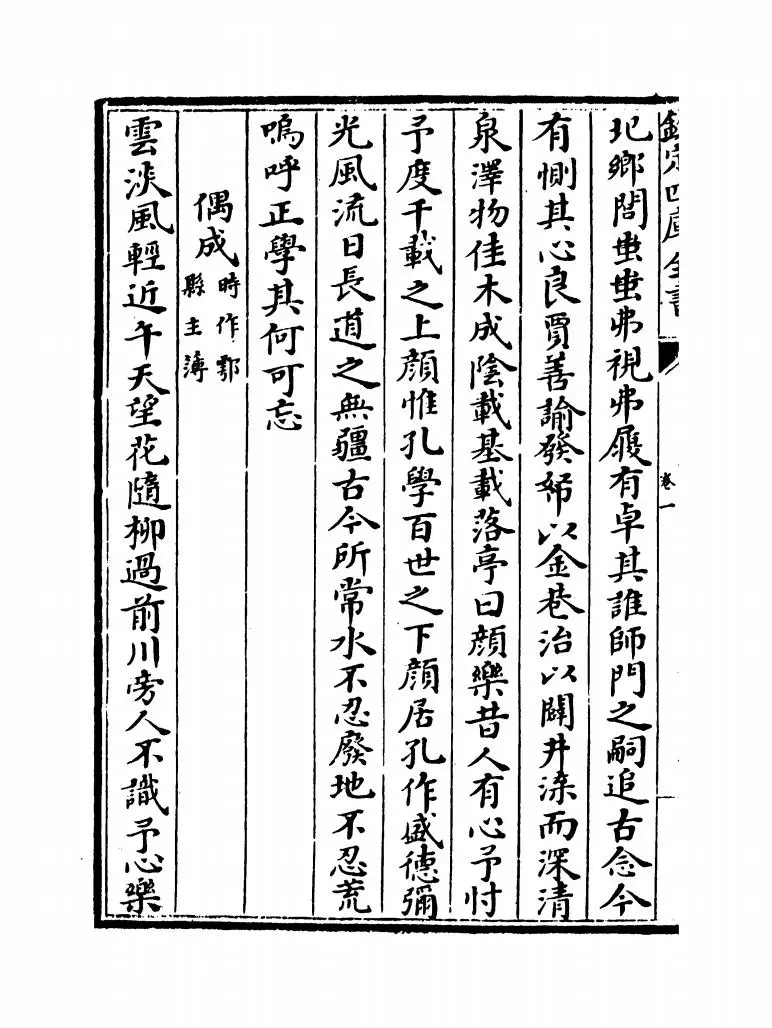 欽定四庫全書 卷一
圮鄉閭蚩蚩弗視弗履有卓其誰師門之嗣追古念今
有惻其心良賈善諭發帑以金巷治以闢井渫而深清
泉澤物佳木成陰載基載落亭曰顔樂昔人有心予忖
予度千載之上顔惟孔學百世之下顔居孔作盛徳彌
光風流日長道之無疆古今所常水不忍廢地不忍荒
嗚呼正學其何可忘
偶成 時作鄠縣主簿
雲淡風輕近午天望花隨柳過前川旁人不識予心樂